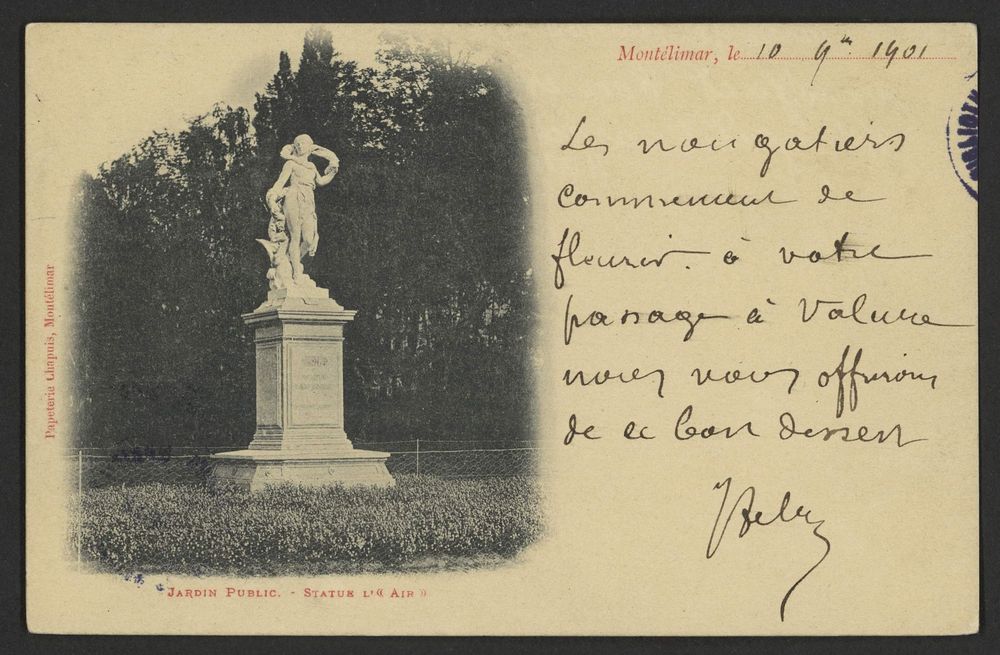 Montélimar, le 10 9bre 1901
Les nougatiers
commencent de
fleurir. à votre
passage à Valence
nous vous offrirons
de ce bon dessert
Papeterie Chapuis, Montélimar
Jardin Public. - Statue l'« Air »